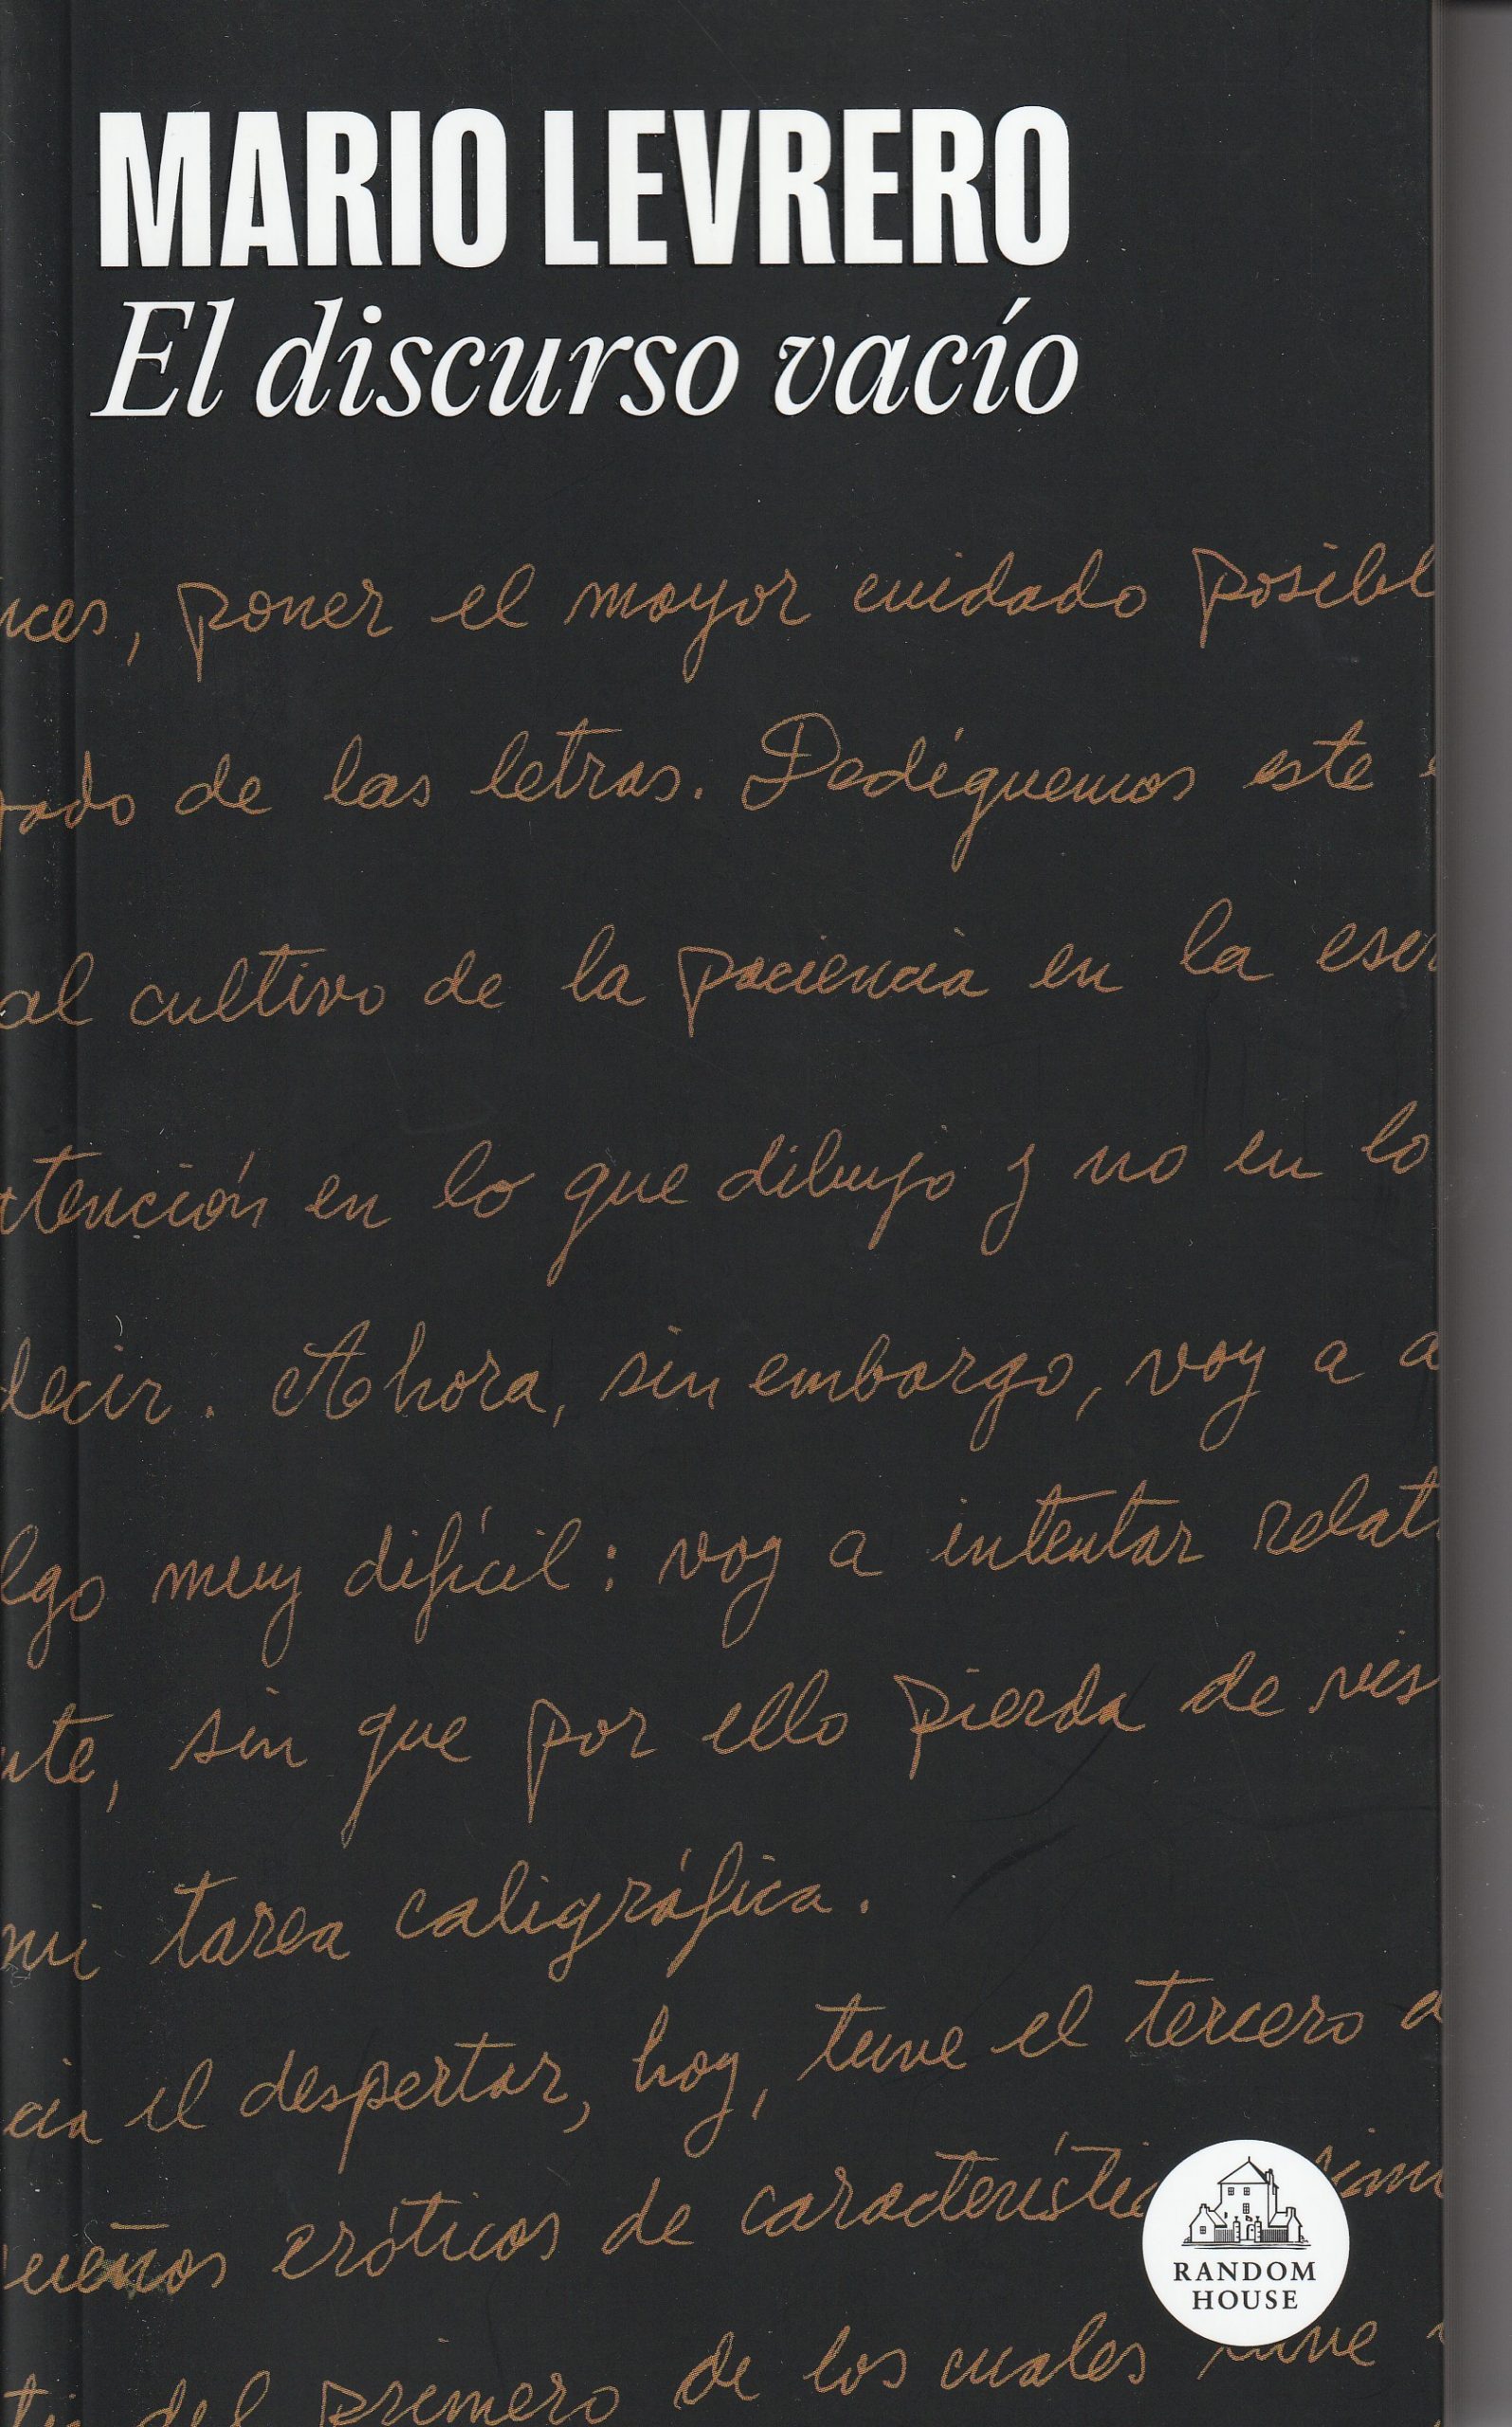 MARIO LEVRERO
El discurso vacío
nces, poner el mayor cuidado posibl
zado de las letras. Dediquemos este
al cultivo de la paciencia en la escr
atención en lo que dibujo y no en lo
decir. Ahora, sin embargo, voy a a
lgo muy difícil: voy a intentar relat
nte, sin que por ello pierda de vis
mi tarea caligráfica.
cia el despertar, hoy, tuve el tercero
sueños eróticos de característic simi
del primero de los cuales tuve
RANDOM
HOUSE